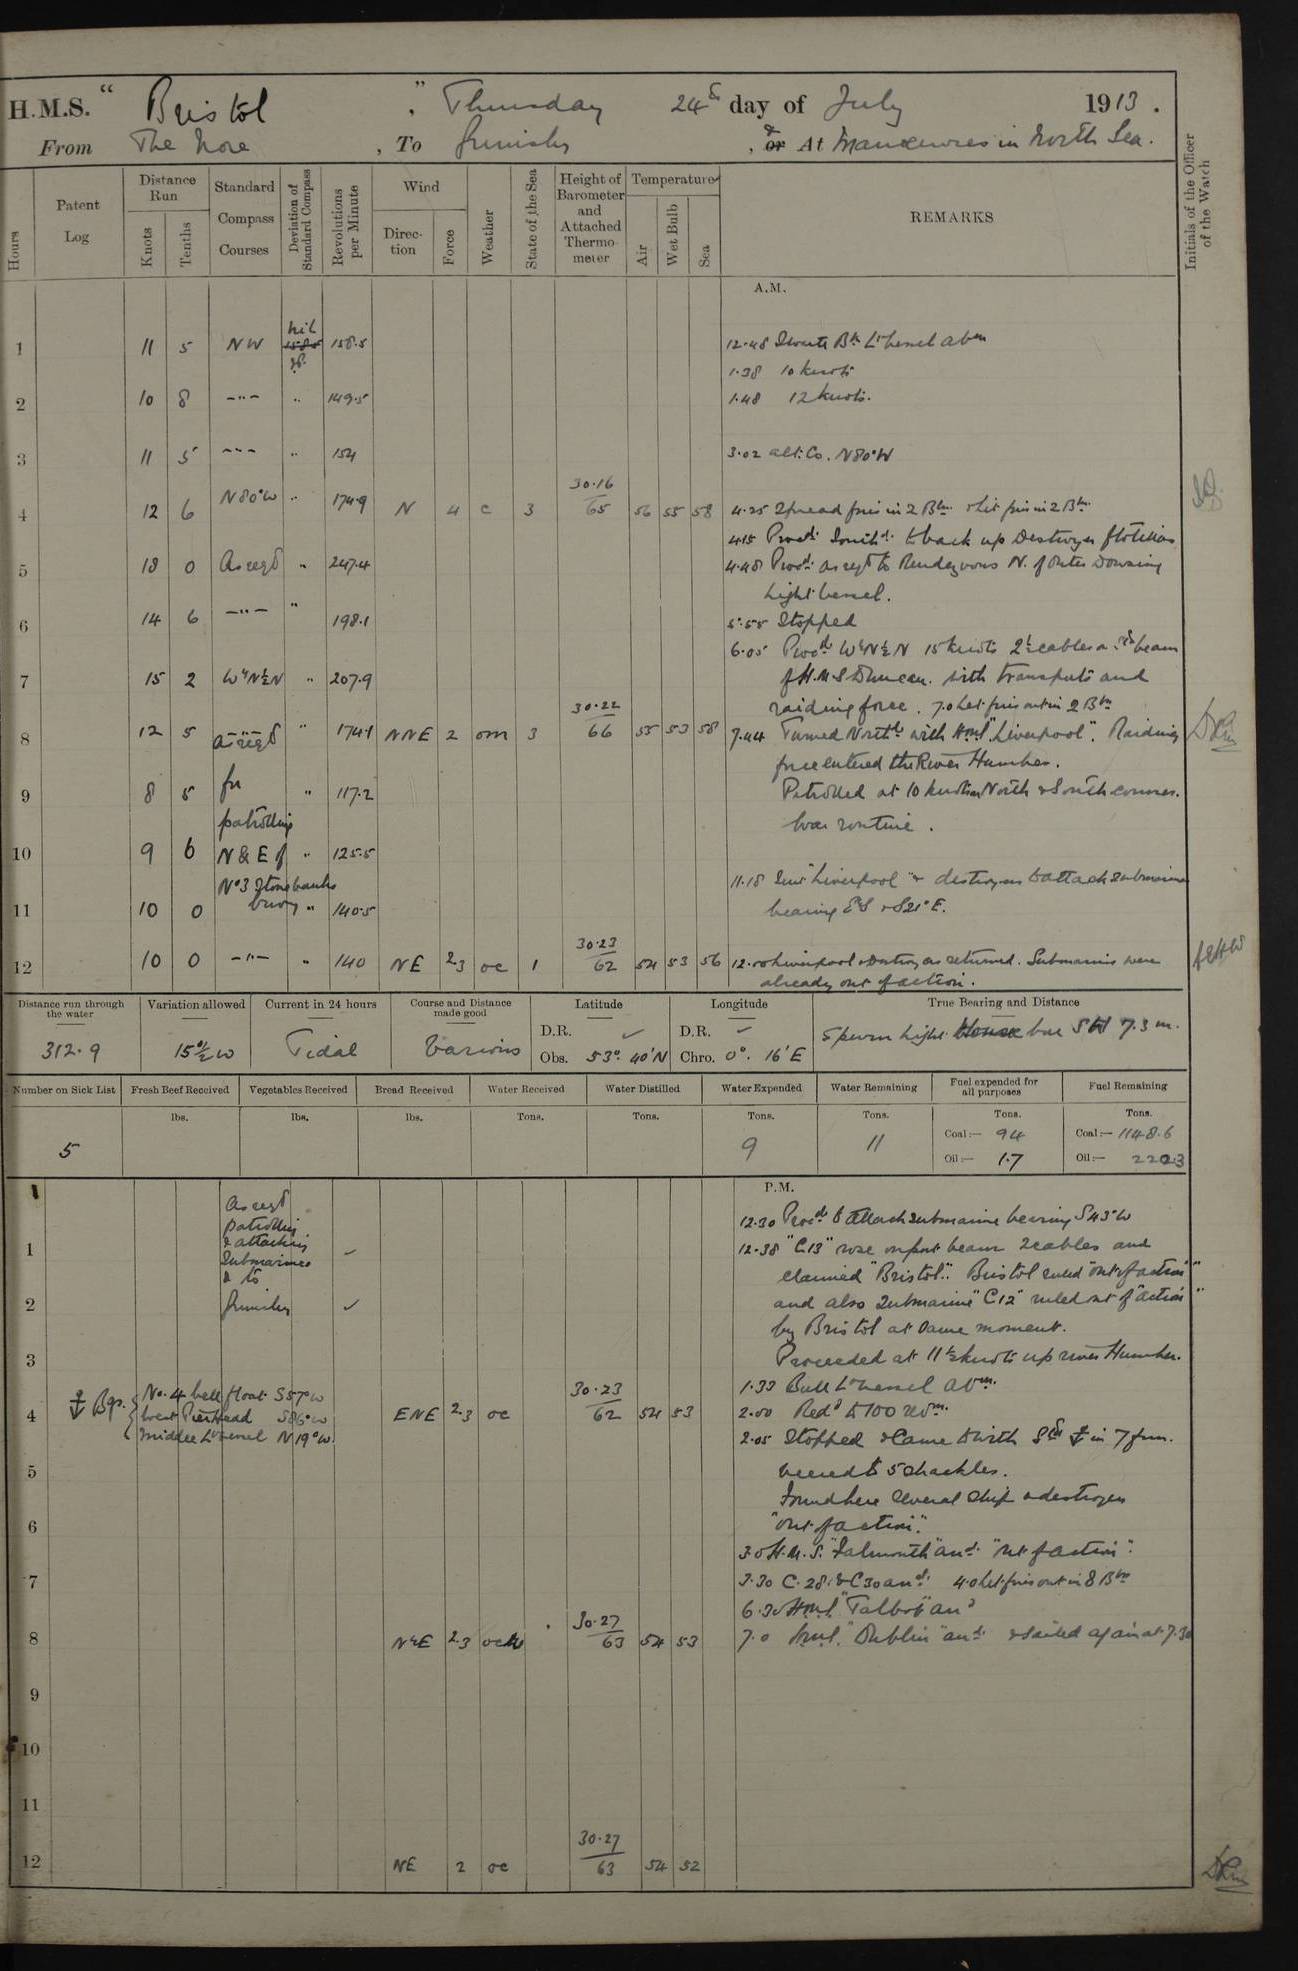 H.M.S. "Bristol", Thursday 24th day of July 1913.
From The Nore, To Grimsby, & or At Manœuvres in North Sea.
Hours
Patent Log
Distance Run
Knots
Tenths
Standard Compass Courses
Deviation of Standard Compass
Revolutions per Minute
Wind
Direction
Force
Weather
State of the Sea
Height of Barometer and Attached Thermometer
Temperature
Air
Wet Bulb
Sea
REMARKS
Initials of the Officer of the Watch
A.M.
1 11 5 NW nil 158.5 12.48 Bn Lt Vessel abm
1.38 10 knots
2 10 8 —"— " 149.5 1.48 12 knots.
3 11 5 --- " 154 3.02 alt. Co. N80°W
4 12 6 N80°W " 174.9 N 4 c 3 30.16/65 56 55 58 4.25 Spread fires in 2 Brs & lit fires in 2 Brs
4.15 Procd. Southd. to back up Destroyer flotillas
5 18 0 As reqd " 247.4 4.48 Procd. as reqd to Rendezvous N. of Outer Dowsing
Light Vessel.
6 14 6 —"— " 198.1 5.55 Stopped
6.05 Procd WbyN½N 15 knots 2½ cables a. beam
7 15 2 WbyN½N " 207.9 of H.M.S Duncan. with transports and
raiding force. 7.0 Let fires out in 2 Brs
8 12 5 As reqd " 174.1 NNE 2 om 3 30.22/66 55 53 58 7.44 Turned Northd with HMS "Liverpool". Raiding
force entered the River Humber.
9 8 5 for " 117.2 Patrolled at 10 knots on North & South courses.
patrolling War routine.
10 9 6 N & E of " 125.5
No 3 Stonebanks 11.18 "Liverpool" & destroyers to attack submarine
11 10 0 buoy " 140.5 bearing & S21°E.
12 10 0 —"— " 140 NE 2.3 oc 1 30.23/62 54 53 56 12.00 Liverpool & Destroyers returned. Submarines were
already out of action.
Distance run through the water
312.9
Variation allowed
15½°W
Current in 24 hours
Tidal
Course and Distance made good
Various
Latitude
D.R. ✓
Obs. 53° 40'N
Longitude
D.R. ✓
Chro. 0° 16'E
True Bearing and Distance
Spurn Light House bore SW 7.3 m.
Number on Sick List
5
Fresh Beef Received
lbs.
Vegetables Received
lbs.
Bread Received
lbs.
Water Received
Tons.
Water Distilled
Tons.
Water Expended
Tons.
9
Water Remaining
Tons.
11
Fuel expended for all purposes
Tons.
Coal:— 94
Oil:— 1.7
Fuel Remaining
Tons.
Coal:— 1148.6
Oil:— 220.3
P.M.
As reqd
patrolling 12.30 Procd to attack submarine bearing S43°W
1 & attacking 12.38 "C13" rose on port beam 2 cables and
Submarines claimed "Bristol". Bristol ruled "out of action"
& to
2 Grimsby and also Submarine "C12" ruled out of "action"
by Bristol at same moment.
3 Proceeded at 11½ knots up river Humber.
⚓ Bgs. No. 4 bell float S57°W 1.33 Bull Lt Vessel abm.
4 West Pierhead S86°W ENE 2.3 oc 30.23/62 54 53 2.00 Redd to 100 revs.
Middle Lt Vessel N19°W. 2.05 Stopped & Came to with Stbd ⚓ in 7 fms.
5 veered to 5 shackles.
Found here several ships & destroyers
6 "out of action".
3.0 H.M.S. "Falmouth" and. "out of action".
7 3.30 C.28. & C30 and. 4.0 Let fires out in 8 Brs
6.30 HMS "Talbot" and
8 NbyE 2.3 oc 30.27/63 54 53 7.0 HMS. "Dublin" and. & sailed again at 7.30
9
10
11
12 NE 2 oc 30.27/63 54 52